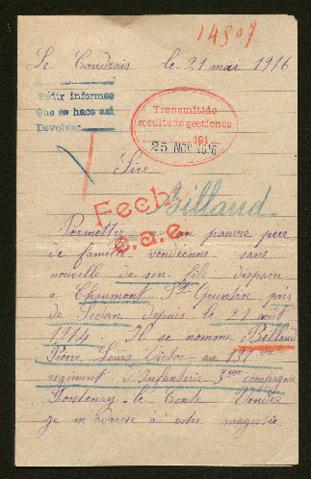 14807
Le Coudrais le 21 mai 1916
Pedir informes
Que se hace así
Devolver
Transmitido
resultado gestiones
191
25 NOV 1916
Sire
Billaud
Fecho
Permettez à un pauvre père
de famille vendéenne sans
nouvelle de son fils disparu
à Chaumont St Quentin près
de Sedan depuis le août
1914. Il se nomme Billaud
Pierre Louis Victor au 137ème
régiment d'Infanterie 3ème compagnie
Fontenay-le Comte Vendée
je m'adresse à votre majesté